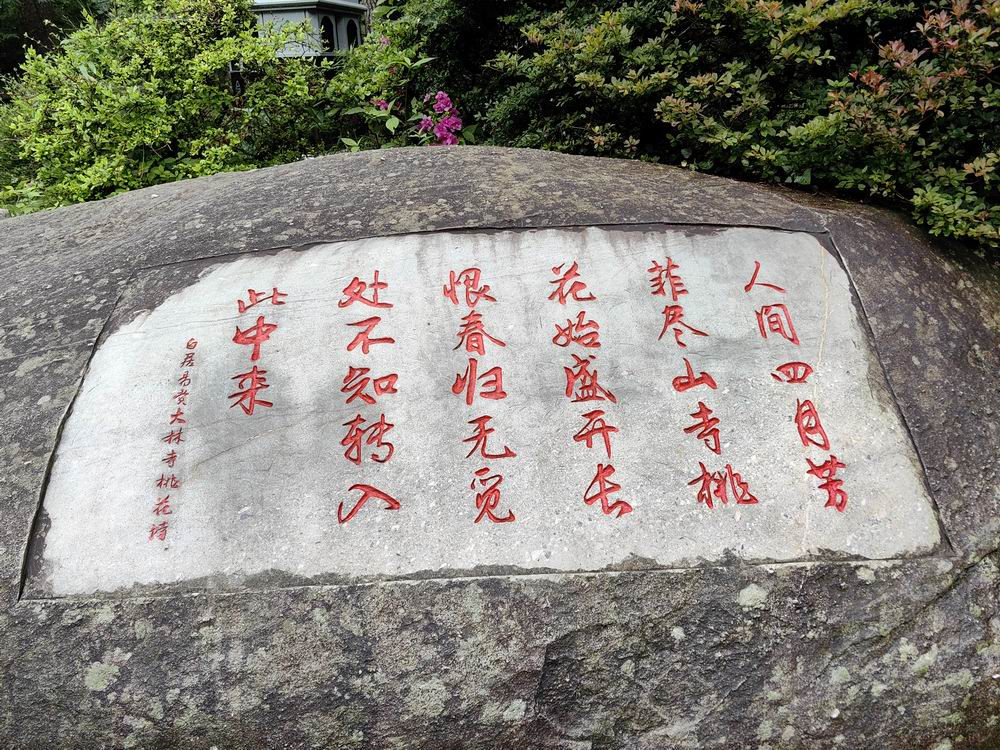 人间四月芳
菲尽山寺桃
花始盛开长
恨春归无觅
处不知转入
此中来
白居易赏大林寺桃花诗